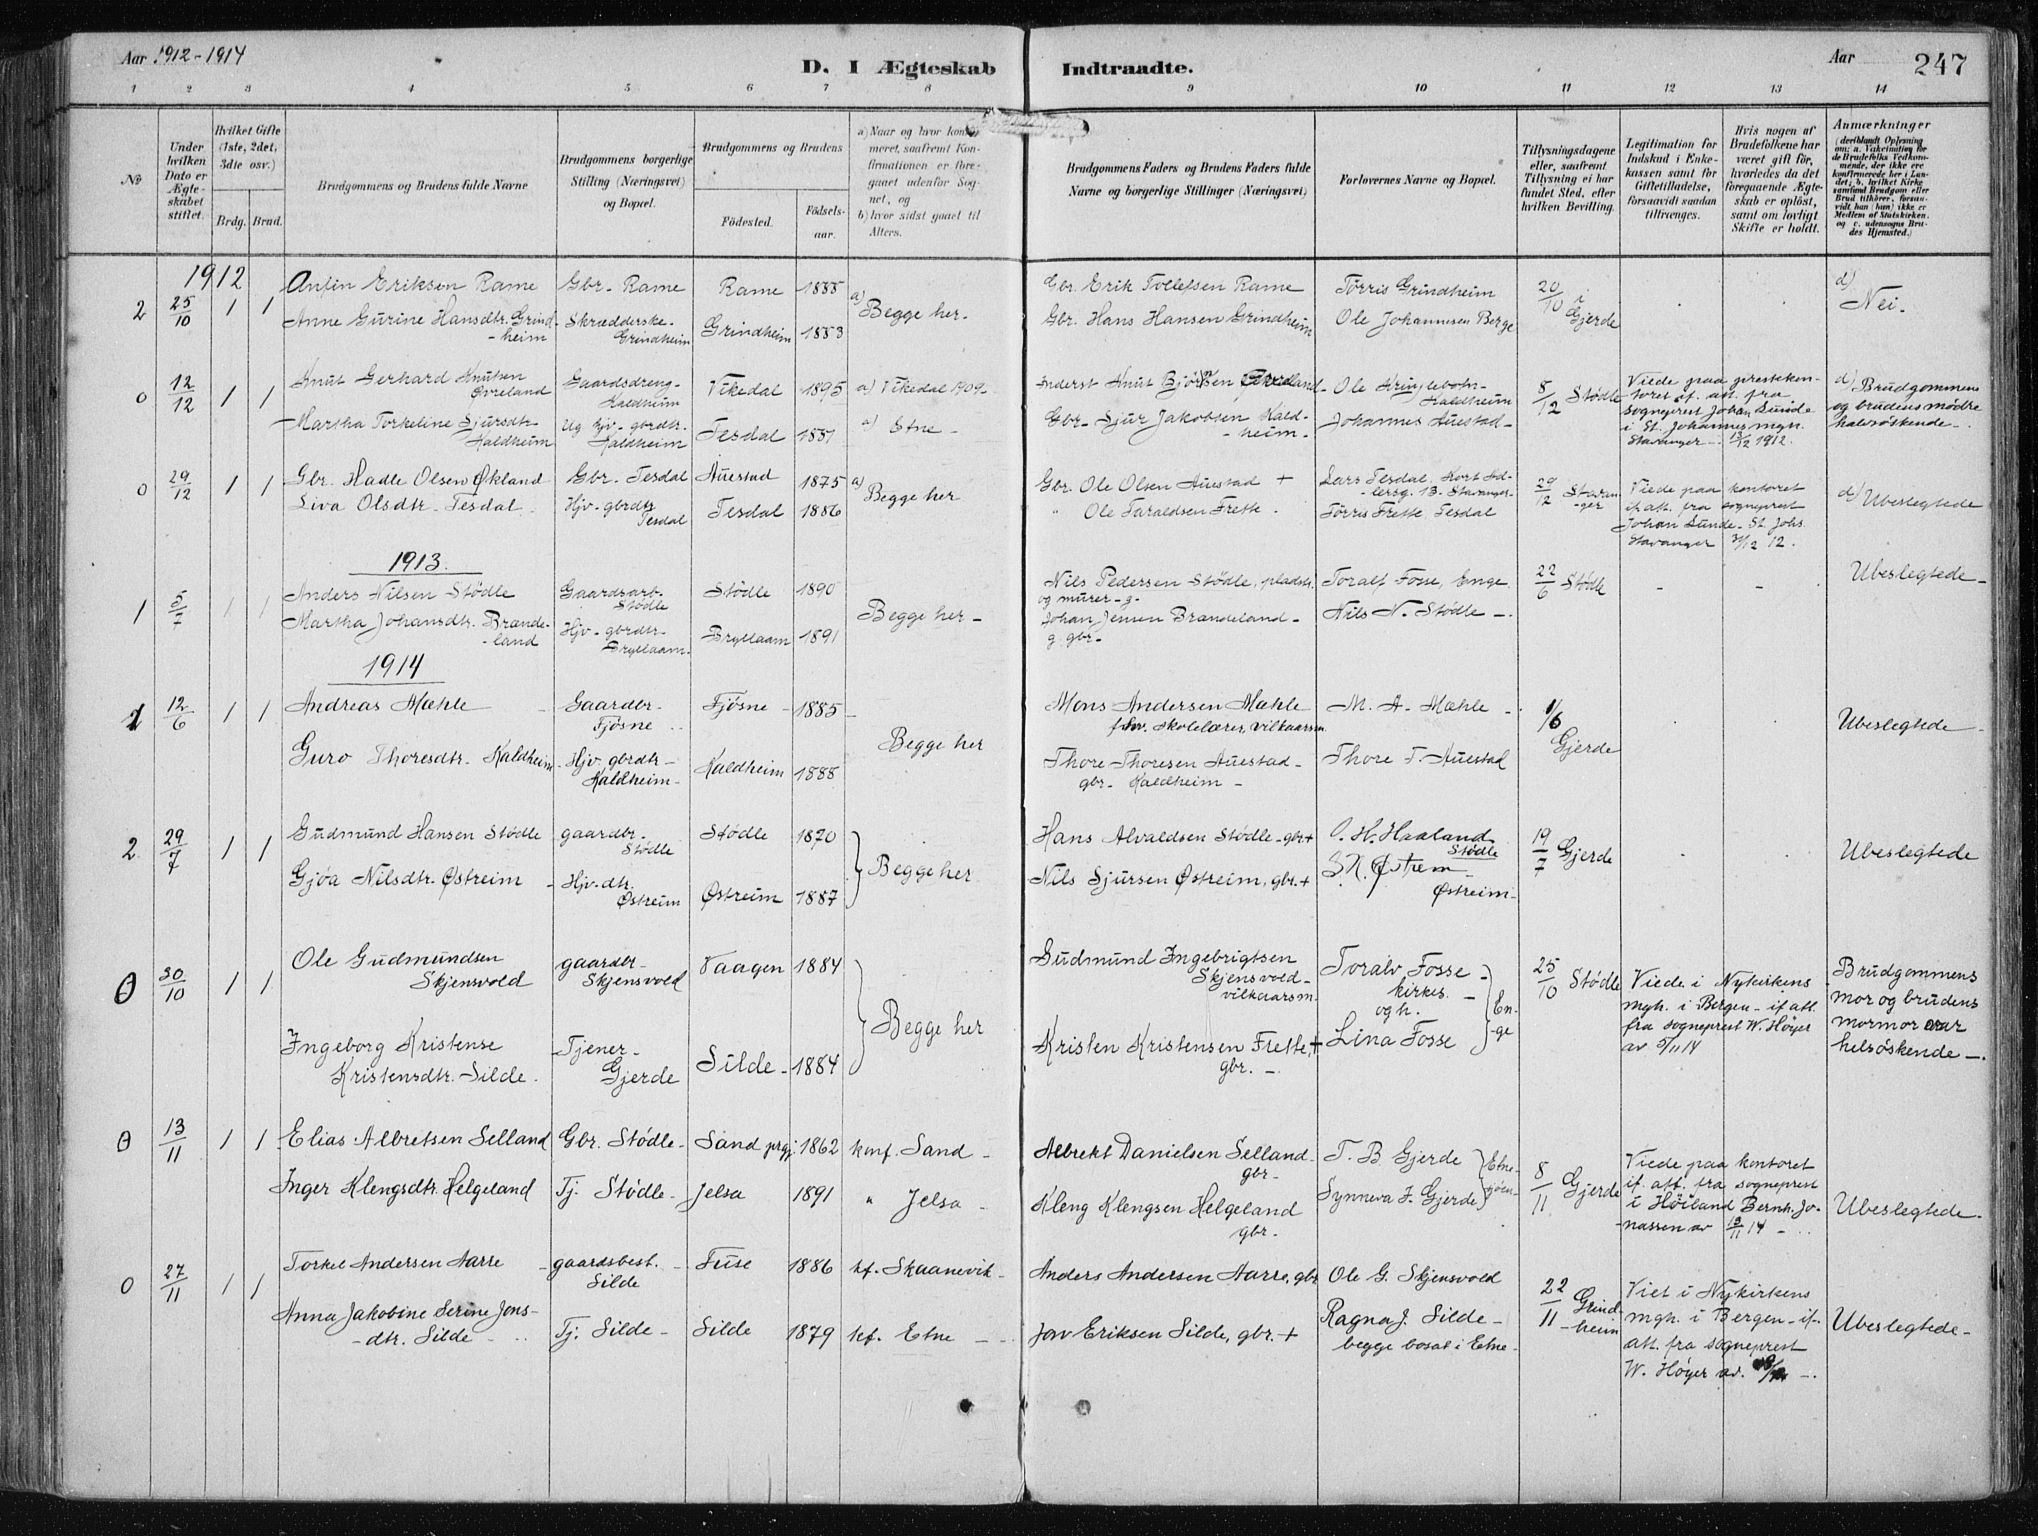 Aar 1912-1914
D. I Ægteskab Indtraadte.
Aar 247
1 2 3 4 5 6 7 8 9 10 11 12 13 14
No
Under hvilken Dato er Ægteskabet stiftet.
Hvilket Gifte (1ste, 2det, 3die osv.)
Brdg. Brud.
Brudgommens og Brudens fulde Navne
Brudgommens borgerlige Stilling (Næringsvei) og Bopæl.
Brudgommens og Brudens
Fødested.
Fødselsaar.
a) Naar og hvor konfirmeret, saafremt Konfirmationen er foregaaet udenfor Sognet, og
b) hvor sidst gaaet til Alters.
Brudgommens Faders og Brudens Faders fulde Navne og borgerlige Stillinger (Næringsvei)
Forlovernes Navne og Bopæl.
Tillysningsdagene eller, saafremt Tillysning ei har fundet Sted, efter hvilken Bevilling.
Legitimation for Indskud i Enkekassen samt for Giftetilladelse, forsaavidt saadan tiltrænges.
Hvis nogen af Brudefolkene har været gift før, hvorledes da det foregaaende Ægteskab er opløst, samt om lovligt Skifte er holdt.
Anmærkninger
(deriblandt Oplysning om: a. Vakcination for de Brudefolks Vedkommende, der ikke ere konfirmerede her i Landet; b. hvilket Kirkesamfund Brudgom eller Brud tilhører, forsaavidt han (hun) ikke er Medlem af Statskirken, og c. udensogns Brudes Hjemsted.)
1912
2 25/10 1 1 Anfin Eriksen Rame Gbr. Rame Rame 1855 a) Begge her. Gbr. Erik Tollefsen Rame Tørris Grindheim 20/10 i Gjerde d) Nei.
Anne Gurine Hansdtr. Grindheim Skrædderske Grindheim Grindheim 1853 Gbr. Hans Hansen Grindheim Ole Johannesen Berge
0 12/12 1 1 Knut Gerhard Knutsen Øvreland Gaardsdreng Kaldheim Vikedal 1895 a) Vikedal 1909 Inderst Knut Ole Kringlebotn Kaldheim 8/12 Stødle Viede paa prestekontoret if. att. fra sogneprest Johan Lunde i St. Johannes mgn. Stavanger 13/12 1912. d) Brudgommens og brudens mødre halvsøskende
Martha Torkeline Sjursdtr. Kaldheim Ug hjv. gbrdtr. Kaldheim Tesdal 1881 a) Etne Gbr. Sjur Jakobsen Kaldheim Johannes Auestad
0 29/12 1 1 Gbr. Hadle Olsen Økland Gbr. Tesdal Auestad 1875 a) Begge her Gbr. Ole Olsen Auestad + Lars Tesdal, 13. Stavanger 29/12 Stavanger Viede paa kontoret if. att. fra sogneprest Johan Lunde St. Johs. Stavanger 31/12 12. d) Ubeslegtede
Liva Olsdtr. Tesdal. Hjv. gbrdtr. Tesdal Tesdal 1886 " Ole Taraldsen Frette. Tørris Frette, Tesdal
1913.
1 5/7 1 1 Anders Nilsen Stødle Gaardsarb. Stødle Stødle 1890 Begge her Nils Pedersen Stødle, pladsm. og murer g. Toralf Fosse, Enge 22/6 Stødle - - Ubeslegtede
Martha Johansdtr. Brændeland Hjv. gbrdtr. Bryllaam. Bryllaam 1891 Johan Jensen Brændeland g. gbr. Nils N. Stødle
1914
1 12/6 1 1 Andreas Mæhle Gaardbr. Fjøsne Fjøsne 1885 Begge her Mons Andersen Mæhle fhv. skolelærer, vilkaarsm. M. A. Mæhle 1/6 Gjerde Ubeslegtede
Guro Thoresdtr. Kaldheim Hjv. gbrdtr. Kaldheim Kaldheim 1888 Thore Thoresen Auestad gbr. Kaldheim Thore T. Auestad
2 29/7 1 1 Gudmund Hansen Stødle gaardbr. Stødle Stødle 1870 Begge her Hans Alvaldsen Stødle gbr + O. H. Haaland Stødle 19/7 Gjerde Ubeslegtede
Gjøa Nilsdtr. Østreim Hjv. dtr. Østreim Østreim 1887 Nils Sjursen Østreim, gbr. + S. N. Østrem Østreim
0 30/10 1 1 Ole Gudmundsen Skjensvold gaardbr. Skjensvold Vaagen 1884 Begge her Gudmund Ingebrigtsen Skjensvold vilkaarsm. Toralv Fosse kirkes. og h. 25/10 Stødle Viede i Nykirkens mgh. i Bergen if. att. fra sogneprest W. Høyer av 5/11 14 Brudgommens mor og brudens mormor var helsøskende
Ingeborg Kristense Kristensdtr. Silde. Tjener Gjerde Silde 1884 Kristen Kristensen Frette, + gbr. Lina Fosse Enge
0 13/11 1 1 Elias Albretsen Selland Gbr. Stødle Sand prgj. 1862 konf. Sand Albrekt Danielsen Selland gbr T. B. Gjerde Etnesjøen 8/11 Gjerde Viede paa kontoret if. att. fra sogneprest i Høiland Bernh. Jonassen av 13/11 14 Ubeslegtede
Inger Klengsdtr. Helgeland Tj. Stødle Jelsa 1891 " Jelsa Kleng Klengsen Helgeland gbr. Synneva J. Gjerde
0 27/11 1 1 Torkel Andersen Aarre gaardsbest. Silde Tuse 1886 kf. Skaanevik Anders Andersen Aarre, gbr Ole G. Skjensvold 22/11 Grindheim Viet i Nykirkens mgh. i Bergen if. att. fra sogneprest W. Høyer av. Ubeslegtede
Anna Jakobine Serine Jonsdtr. Silde Tj. Silde Silde 1879 kf. Etne Jon Eriksen Silde, gbr. + Ragna J. Silde begge bosat i Etne